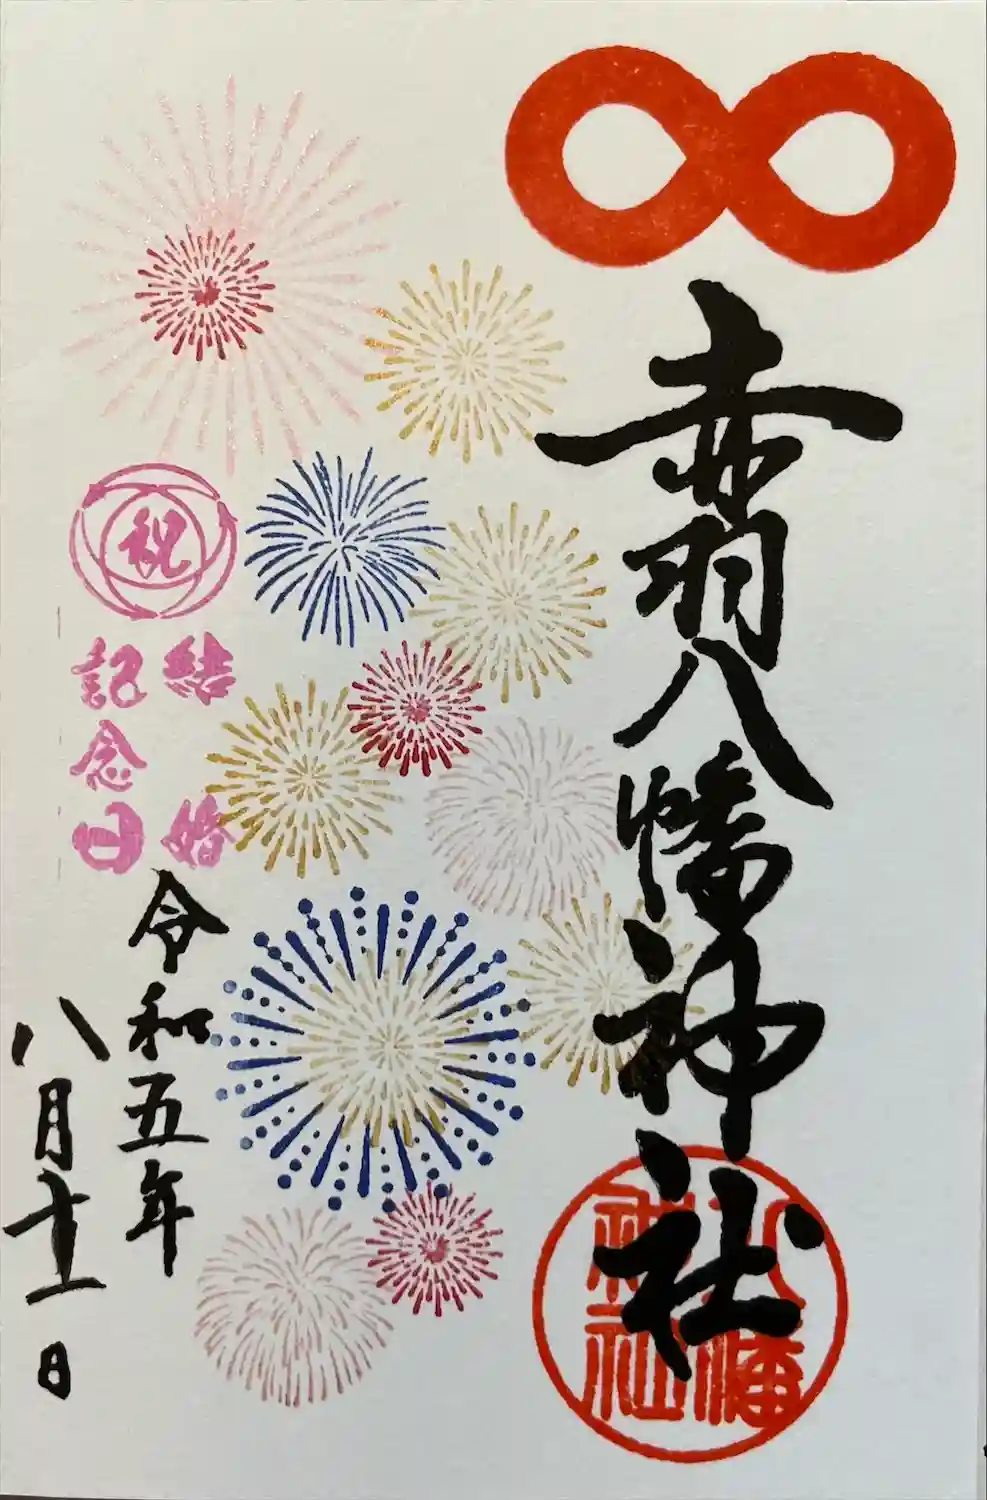 赤羽八幡神社
八幡
神社
祝
結婚
記念日
令和五年
八月十一日